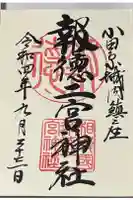 小田原城内鎮座
報徳二宮神社
令和四年九月二十三日